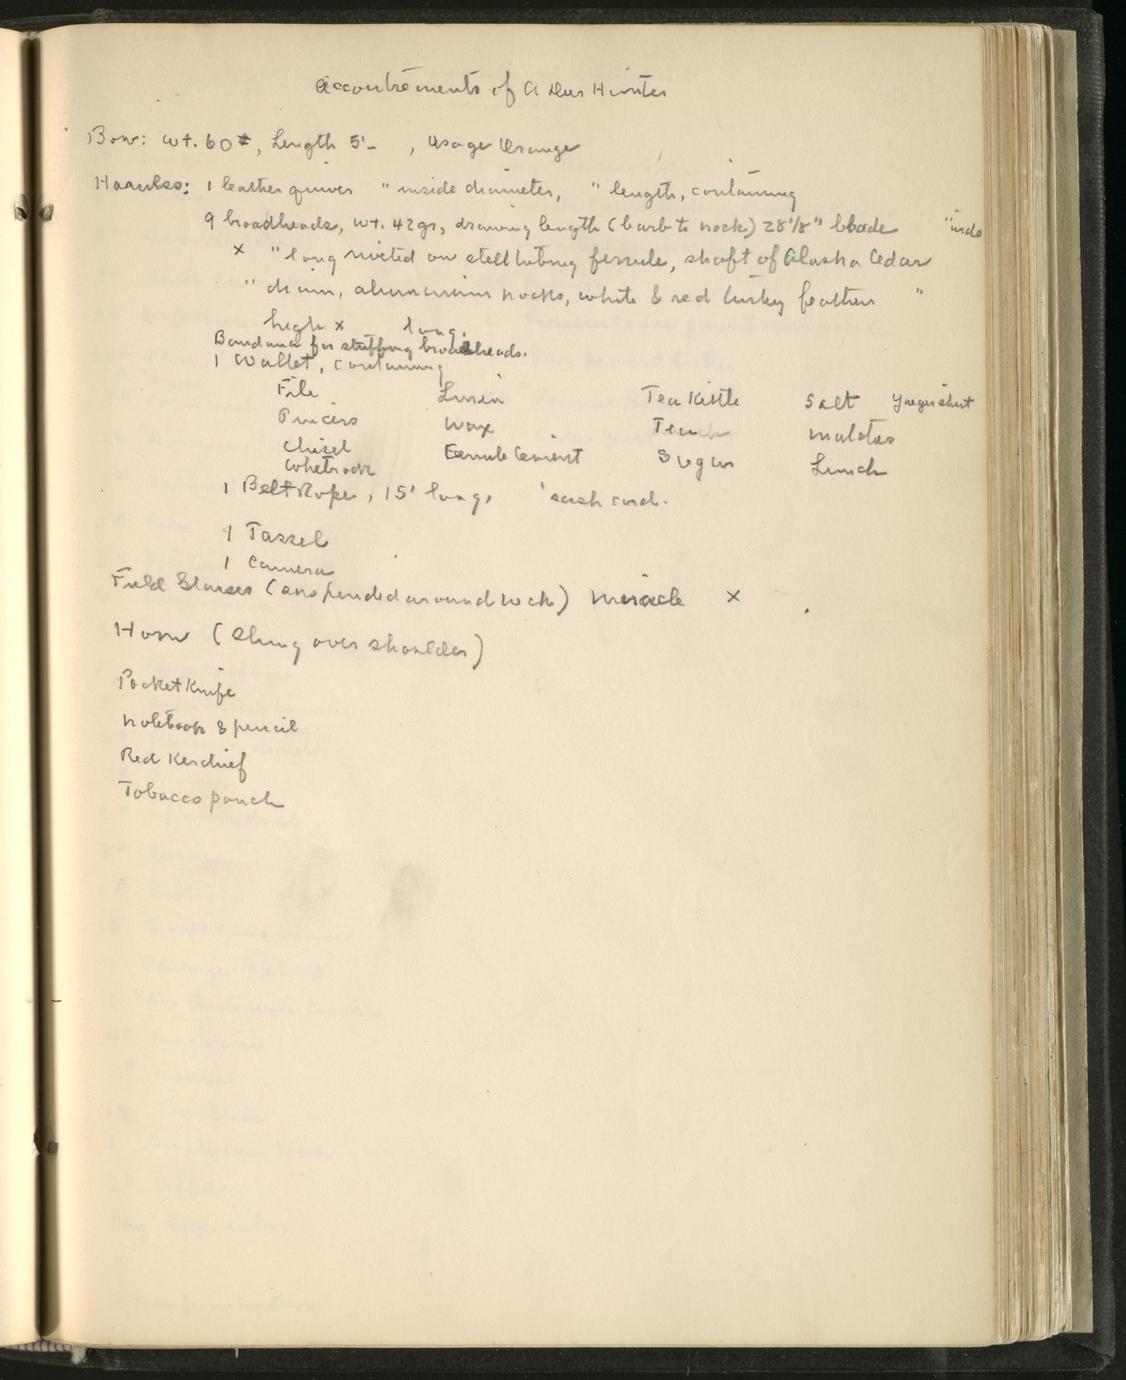 Accoutrements of a Deer Hunter
Bow: wt. 60#, Length 5'- , Osage Orange
Harness: 1 leather quiver " inside diameter, " length, containing
9 broadheads, wt. 42gs, drawing length (barb to nock) 28 1/8" blade "wide
x " long riveted on steel tubing ferrule, shaft of Alaska Cedar
" diam, aluminum nocks, white & red turkey feathers "
high x long.
Bandana for stuffing broadheads.
1 Wallet, containing
File Linen Tea Kettle Salt Yaeger shirt
Pincers Wax Tea matches
Chisel Ferrule Cement Sugar Lunch
Whetrock
1 Belt Rope, 15' long, sash cord.
1 Tassel
1 Camera
Field Glasses (suspended around neck) x
Horn (slung over shoulder)
Pocket Knife
Notebook & pencil
Red Kerchief
Tobacco pouch